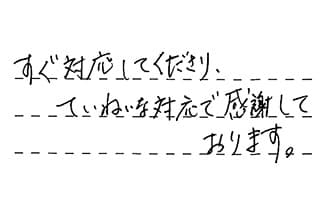 すぐ対応してくださり、
ていねいな対応で感謝して
おります。